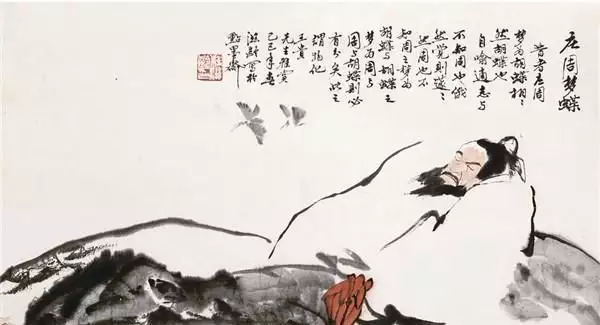 庄周梦蝶
昔者庄周
梦为胡蝶栩々
然胡蝶也
自喻適志与
不知周也俄
然觉则遽々
然周也不
知周之梦为
胡蝶与胡蝶之
梦为周与
周与胡蝶则必
有分矣此之
谓物化
先生雅赏
己巳年春
写於
點墨斋